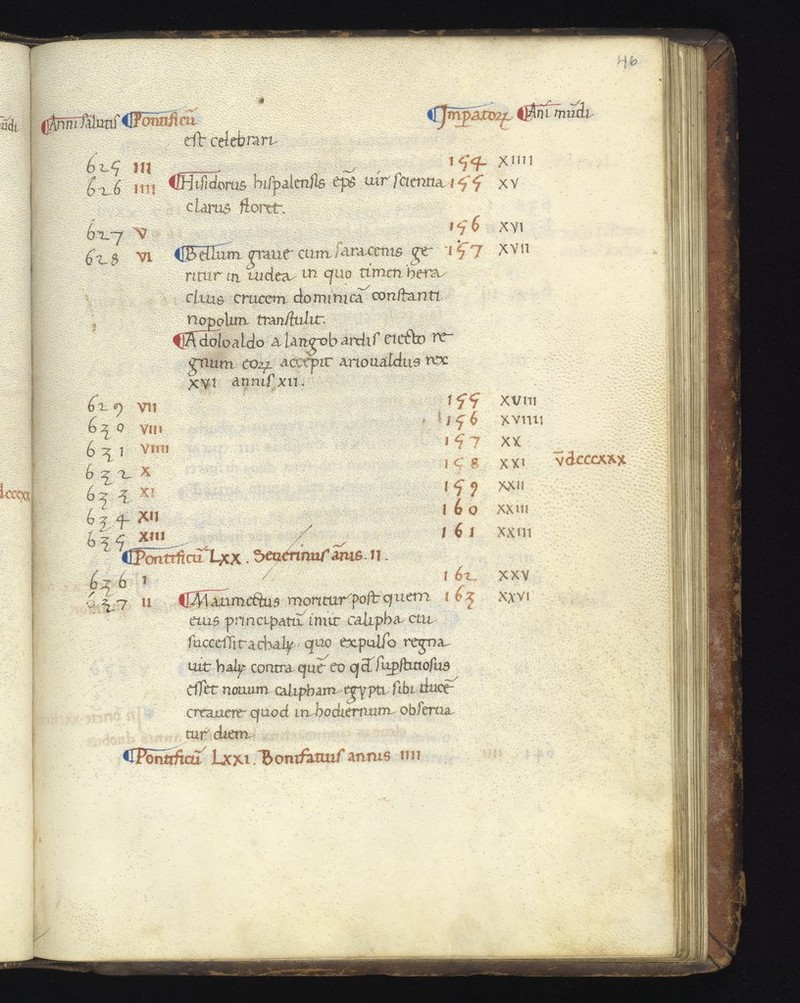 46
Anni salutis Pontificū Imꝑatoꝝ Ani mūdi
est celebrari
625 III 154 XIIII
626 IIII Hisidorus hispalensis eps̄ uir scientia 155 XV
clarus floret.
627 V 156 XVI
628 VI Bellum graue cum saracenis ge 157 XVII
ritur in iudea in quo timen hera
clius crucem dominicā constanti
nopolim transtulit.
Adoloaldo a langobardis eiecto re
gnum eoꝝ accepit arioualdus rex
XVI annis XII.
629 VII 155 XVIII
630 VIII 156 XVIIII
631 VIIII 157 XX
632 X 158 XXI v̄dcccxxx
633 XI 159 XXII
634 XII 160 XXIII
635 XIII 161 XXIIII
Pontificū LXX. Seuerinus ānis. II.
636 I 162 XXV
637 II Maumectus moritur post quem 163 XXVI
eius principatū iniit calipha cui
successit achaly quo expulso regna
uit haly contra quē eo qd̄ suꝑstitiosus
esset nouum calipham egypti sibi ducē
creauere quod in hodiernum obserua
tur diem
Pontificū LXXI. Bonifatius annis IIII